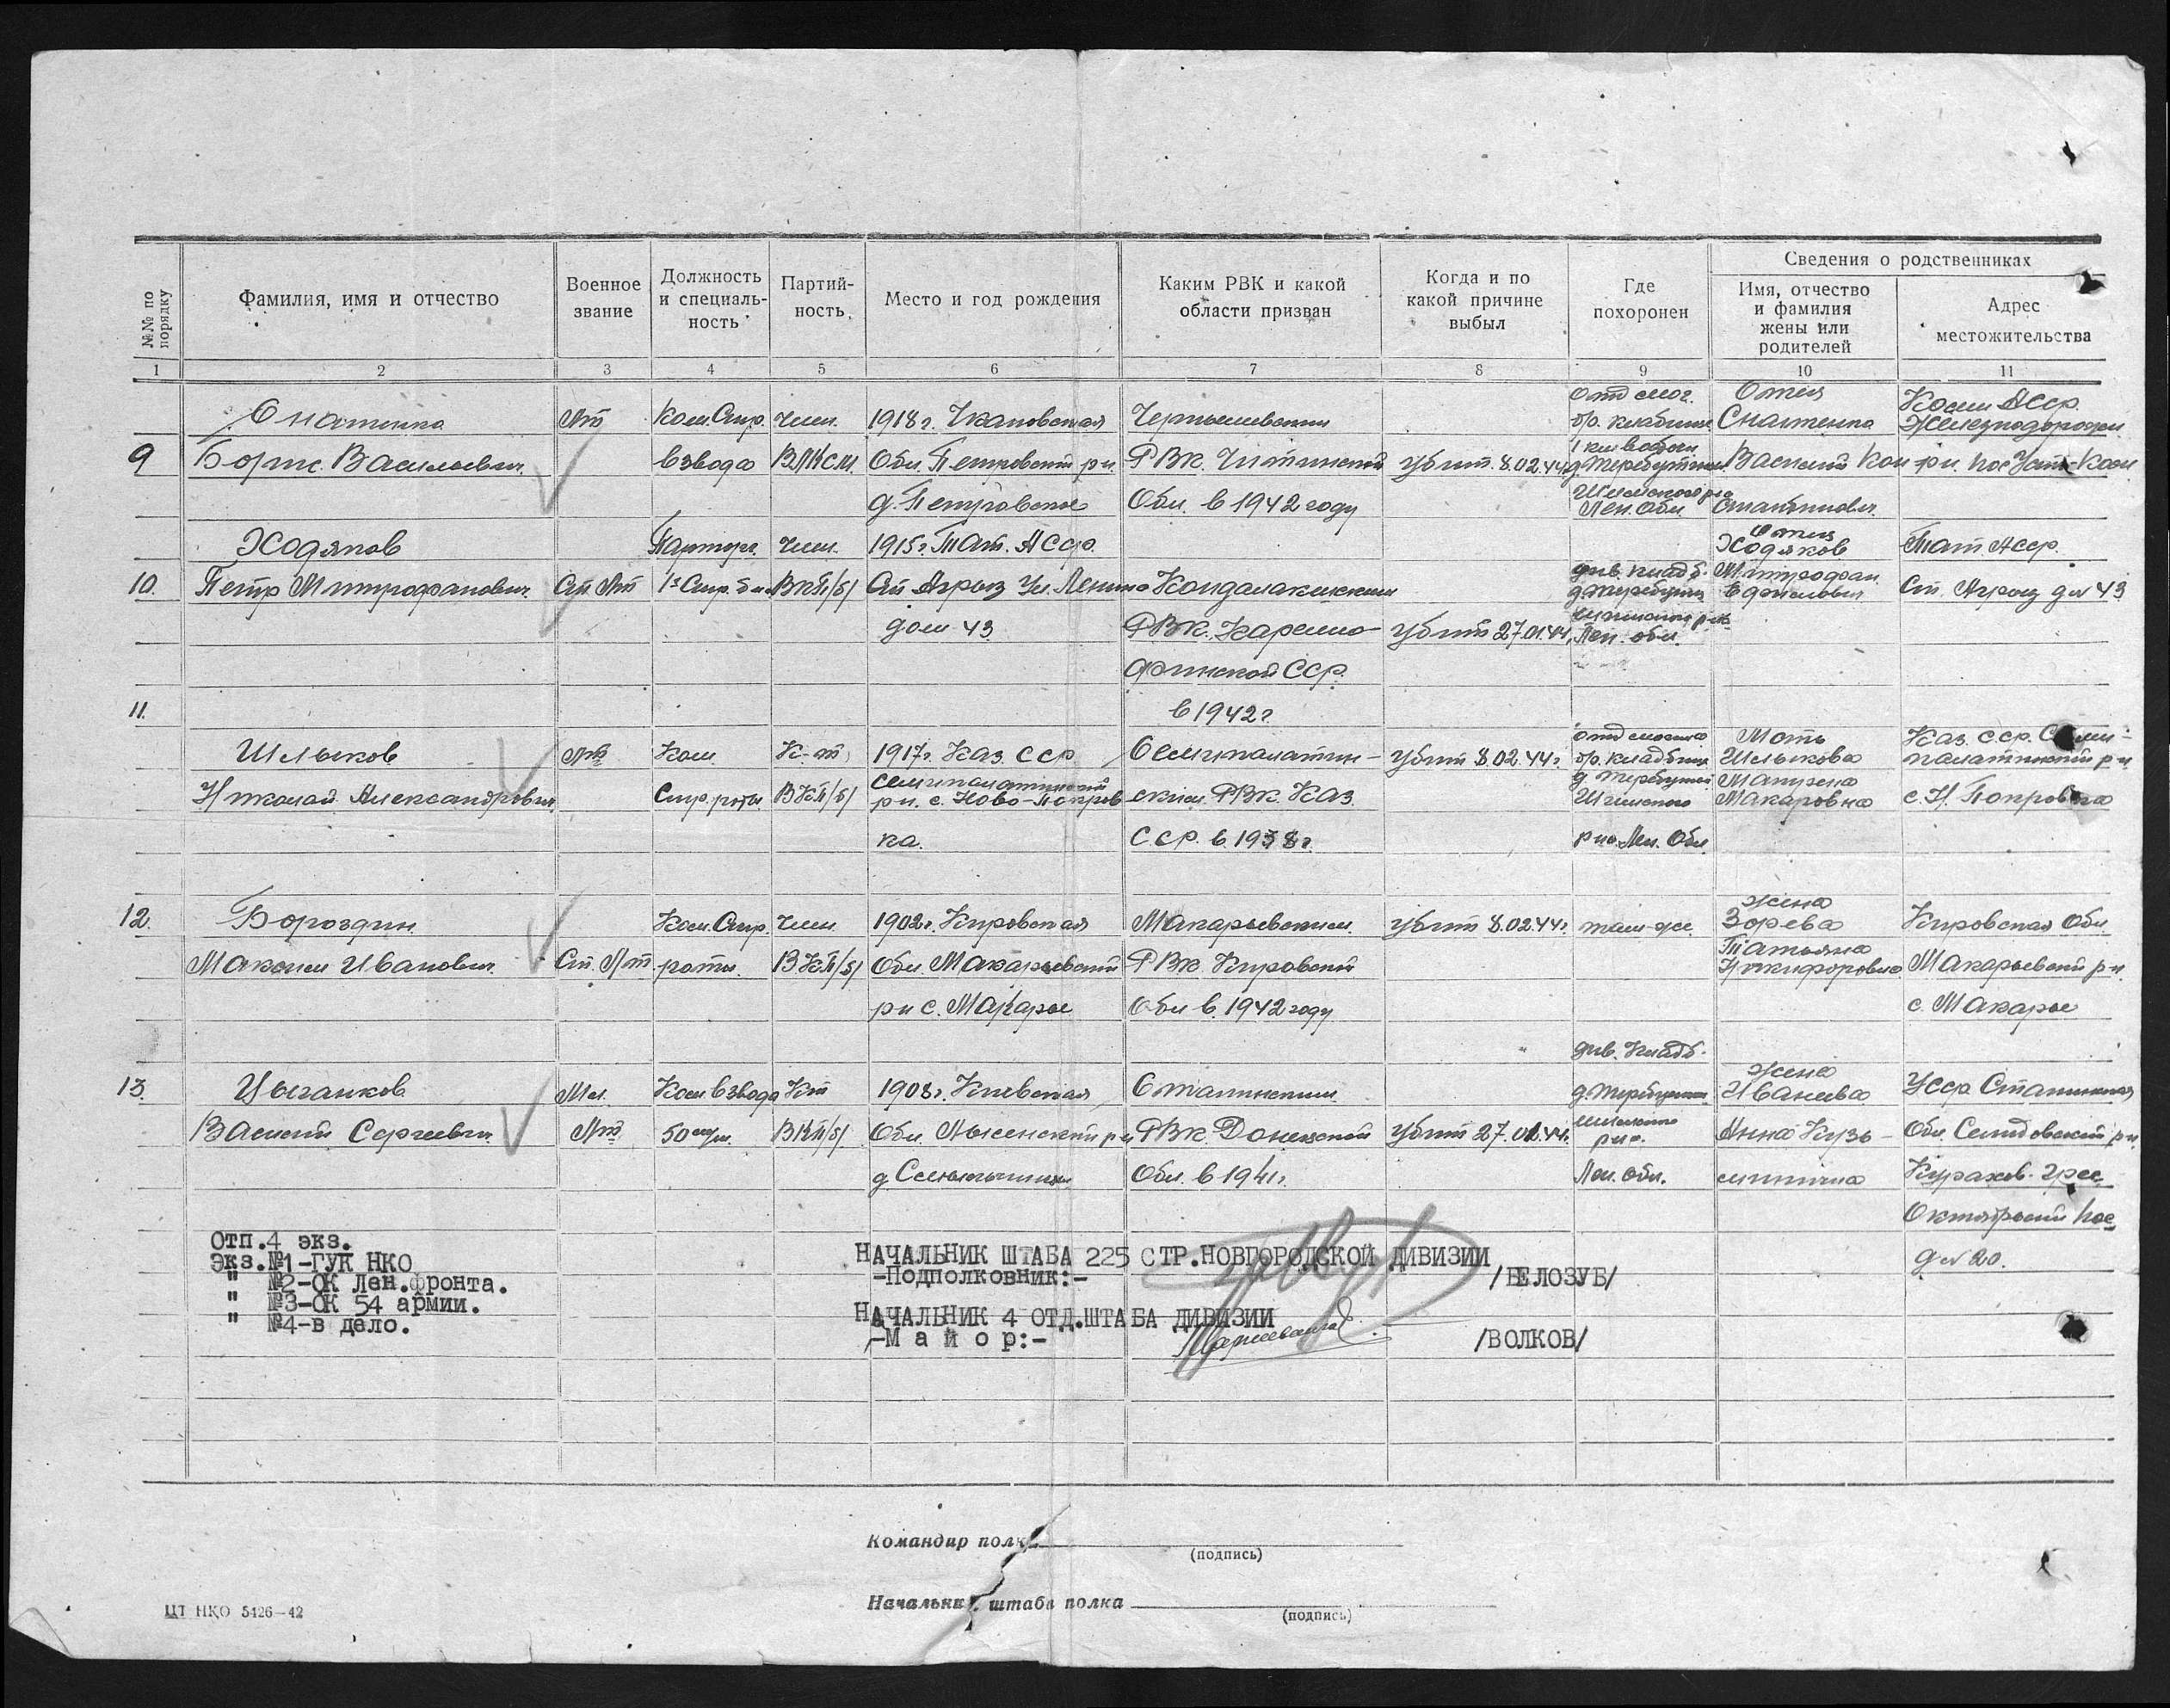 №№ по порядку
Фамилия, имя и отчество
Военное звание
Должность и специаль-ность
Партий-ность
Место и год рождения
Каким РВК и какой области призван
Когда и по какой причине выбыл
Где похоронен
Сведения о родственниках
Имя, отчество и фамилия жены или родителей
Адрес местожительства
1 2 3 4 5 6 7 8 9 10 11
9
Борис Васильевич
Лт
Ком. Стр.
взвода
член
ВЛКСМ
1918 г.
Обл. Петровский р-н
д. Петровское
Чернышевским
РВК. Читинской
Обл. в 1942 году
убит 8.02.44
отд мог.
бр. кладбище
1 км
Лен. Обл.
Отец
Василий Кон
Коми АССР.
Железнодорожн
10.
Ходяков
Петр Митрофанович
Ст. Лт
Парторг
1й Стр. б-н
член
ВКП/б/
1915 г. Тат. АССР
Ст. Агрыз Ул. Ленина
дом 43
Кандалакшским
РВК. Карело
финской ССР.
в 1942 г
убит 27.01.44
див. кладб.
Лен. обл.
Отец
Ходяков
Митрофан
Ефимович
Тат АССР.
Ст. Агрыз д № 43
11.
Шлыков
Николай Александрович
Лт
Ком
Стр. роты
К-т
ВКП/б/
1917 г. Каз. ССР
Семипалатинский
р-н. с. Ново-Покров
ка.
Семипалатин-
ским РВК. Каз
ССР. в 1938 г.
убит 8.02.44 г.
отд могила
бр. кладбище
Шимского
р-на. Лен. Обл.
Мать
Шлыкова
Макаровна
Каз. ССР. Семи-
палатинский р-н
с. Н. Покровка
12.
Бороздин
Максим Иванович
Ст. Лт
Ком. Стр.
роты
член
ВКП/б/
1902 г. Кировская
Обл. Макарьевский
р-н с. Макарье
Макарьевским
РВК. Кировской
Обл в. 1942 году
убит 8.02.44 г.
там-же.
жена
Зорева
Татьяна
Никифоровна
Кировская Обл
Макарьевский р-н
с. Макарье
13.
Цыганков
Василий Сергеевич
Мл.
Лт
Ком взвода
50 м/м.
К-т
ВКП/б/
1908 г. Киевская
Обл. Лысенский р-н
Сталинским
РВК. Донецкой
Обл. в 1941 г.
убит 27.01.44 г.
див. Кладб.
Лен. Обл.
жена
Иванева
Анна Кузь-
минична
УССР Сталинская
Обл. Селидовский р-н
Курахов. грес
Октябрьский пос
д № 20.
Отп.4 экз.
Экз.№1-ГУК НКО
" №2-ОК Лен.фронта.
" №3-ОК 54 армии.
" №4-в дело.
НАЧАЛЬНИК ШТАБА 225 СТР.НОВГОРОДСКОЙ ДИВИЗИИ
-Подполковник:-
/БЕЛОЗУБ/
НАЧАЛЬНИК 4 ОТД.ШТАБА ДИВИЗИИ
-М а й о р:-
/ВОЛКОВ/
Командир полка
(подпись)
Начальник штаба полка
(подпись)
ЦТ НКО 5426—42